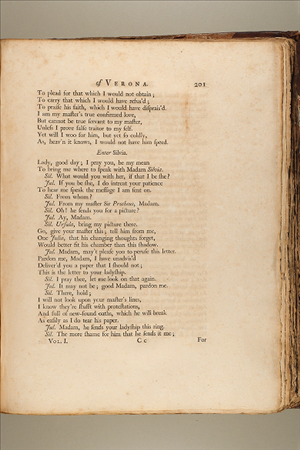 of VERONA. 201
To plead for that which I would not obtain;
To carry that which I would have refus'd;
To praise his faith, which I would have disprais'd.
I am my master's true confirmed love,
But cannot be true servant to my master,
Unless I prove false traitor to my self.
Yet will I woo for him, but yet so coldly,
As, heav'n it knows, I would not have him speed.
Enter Silvia.
Lady, good day; I pray you, be my mean
To bring me where to speak with Madam Silvia.
Sil. What would you with her, if that I be she?
Jul. If you be she, I do intreat your patience
To hear me speak the message I am sent on.
Sil. From whom?
Jul. From my master Sir Protheus, Madam.
Sil. Oh! he sends you for a picture?
Jul. Ay, Madam.
Sil. Ursula, bring my picture there.
Go, give your master this; tell him from me,
One Julia, that his changing thoughts forget,
Would better fit his chamber than this shadow.
Jul. Madam, may't please you to peruse this letter.
Pardon me, Madam, I have unadvis'd
Deliver'd you a paper that I should not;
This is the letter to your ladyship.
Sil. I pray thee, let me look on that again.
Jul. It may not be; good Madam, pardon me.
Sil. There, hold;
I will not look upon your master's lines,
I know they're stufft with protestations,
And full of new-found oaths, which he will break
As easily as I do tear his paper.
Jul. Madam, he sends your ladyship this ring.
Sil. The more shame for him that he sends it me;
VOL. I. C c For